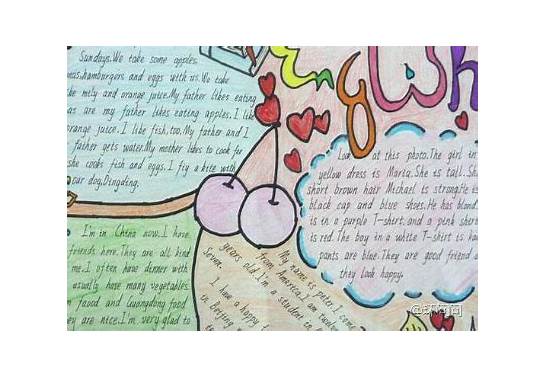 English
Sundays.We take some apples.
hamburgers and eggs with us.We take
milk and orange juice.My father likes eating
as are my father likes eating apples.I like
orange juice. I like fish,too.My father and I
father gets water.My mother likes to cook for
she cooks fish and eggs. I fly a kite with
our dog,Dingding.
Look at this photo.The girl in
yellow dress is Maria.She is tall.
short brown hair Michael is strong.He is
black cap and blue shoes.He has blond
is in a purple T-shirt,and a pink
is red.The boy in a white T-shirt is
pants are blue.They are good friend
they look happy.
I'm in China now.I have
friends here.They are all kind
me.I often have dinner with
usually have many vegetables
food and Guangdong food
are nice.I'm very glad to
My name is peter.I come
from America.I am twelve
years old.I'm a student in
Seven.
I have a happy
in Beijing
to